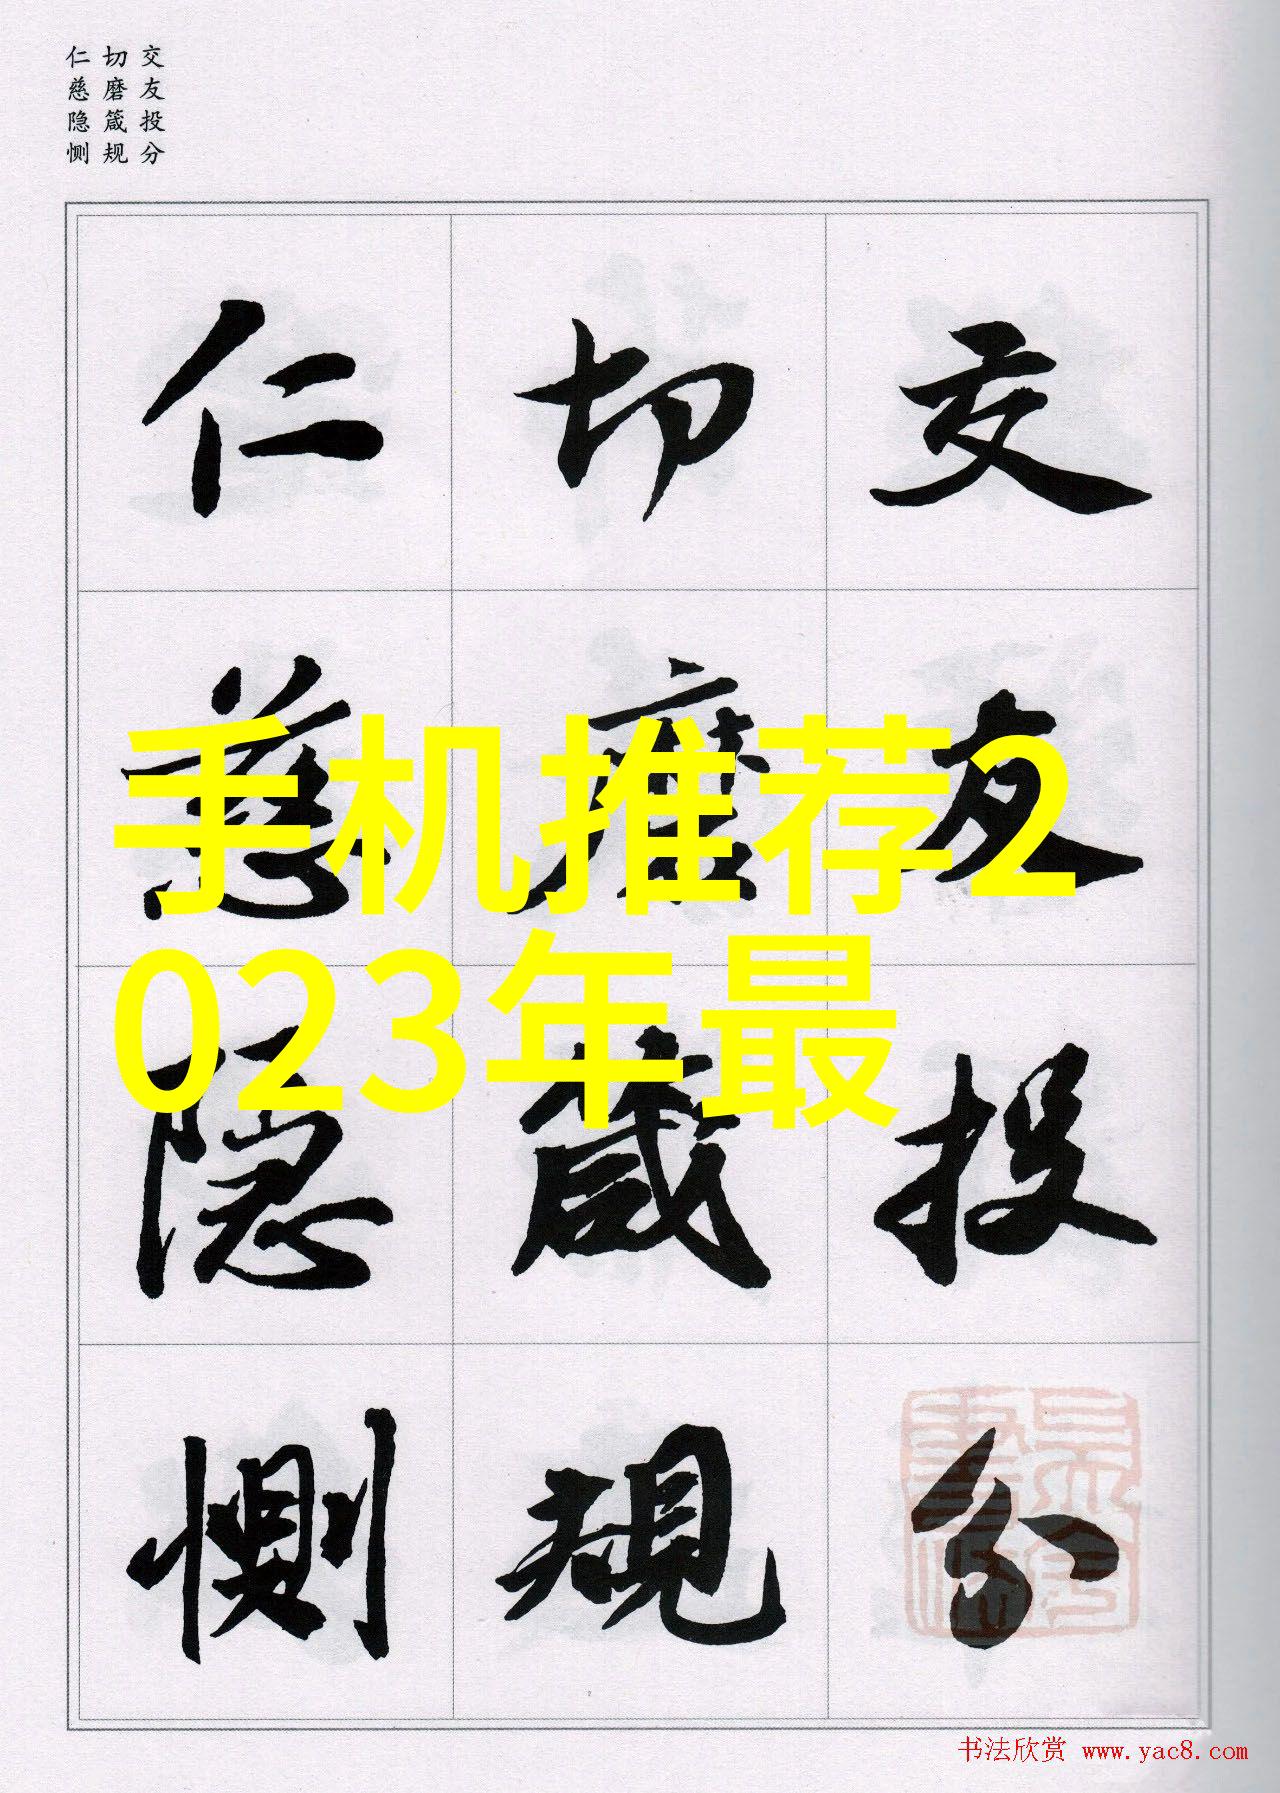 交友投分
切磨箴规
仁慈隐恻
交友投分
切磨箴規
仁慈隐惻
手机推荐2
023年最
书法欣赏 www.yac8.com